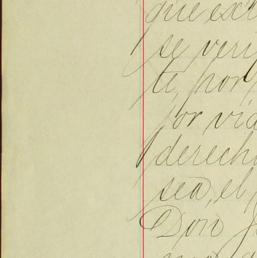 que ex
se veri
te, por
por vi
derech
sea, el
Don J